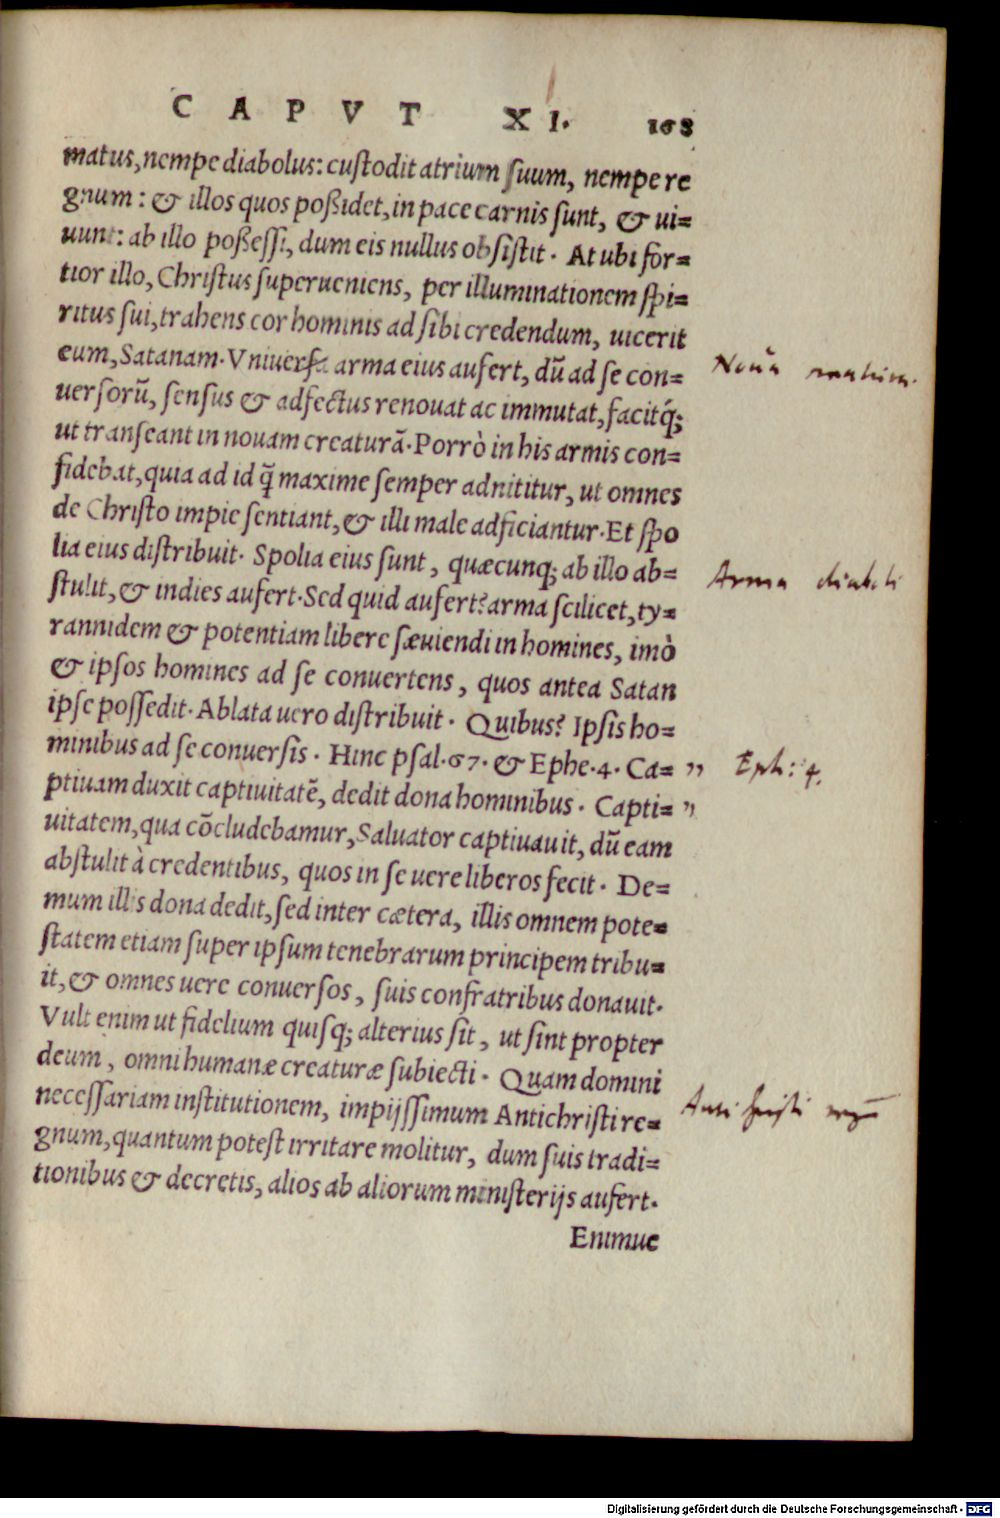 CAPVT XI. 168
matus, nempe diabolus: cuſtodit atrium ſuum, nempe re
gnum: & illos quos poßidet, in pace carnis ſunt, & ui=
uunt: ab illo poßeſſi, dum eis nullus obſiſtit. At ubi for=
tior illo, Chriſtus ſuperueniens, per illuminationem ſpi=
ritus ſui, trahens cor hominis ad ſibi credendum, uicerit
eum, Satanam. Vniuerſa arma eius aufert, dũ ad ſe con=
uerſorũ, ſenſus & adfectus renouat ac immutat, facitq́;
ut tranſeant in nouam creaturã. Porrò in his armis con=
fidebat, quia ad id q̃ maxime ſemper adnititur, ut omnes
de Chriſto impie ſentiant, & illi male adficiantur. Et ſpo
lia eius diſtribuit. Spolia eius ſunt, quæcunq; ab illo ab=
ſtulit, & indies aufert. Sed quid aufert? arma ſcilicet, ty=
rannidem & potentiam libere ſæuiendi in homines, imò
& ipſos homines ad ſe conuertens, quos antea Satan
ipſe poſſedit. Ablata uero diſtribuit. Quibus? Ipſis ho=
minibus ad ſe conuerſis. Hinc pſal. 67. & Ephe. 4. Ca= "
ptiuam duxit captiuitatẽ, dedit dona hominibus. Capti= "
uitatem, qua cõcludebamur, Saluator captiuauit, dũ eam
abſtulit à credentibus, quos in ſe uere liberos fecit. De=
mum illis dona dedit, ſed inter cætera, illis omnem pote=
ſtatem etiam ſuper ipſum tenebrarum principem tribu=
it, & omnes uere conuerſos, ſuis confratribus donauit.
Vult enim ut fidelium quiſq; alterius ſit, ut ſint propter
deum, omni humanæ creaturæ ſubiecti. Quam domini
neceſſariam inſtitutionem, impijſſimum Antichriſti re=
gnum, quantum poteſt irritare molitur, dum ſuis tradi=
tionibus & decretis, alios ab aliorum miniſterijs aufert.
Enimue
Arma diaboli
Eph: 4.
Digitalisierung gefördert durch die Deutsche Forschungsgemeinschaft - DFG